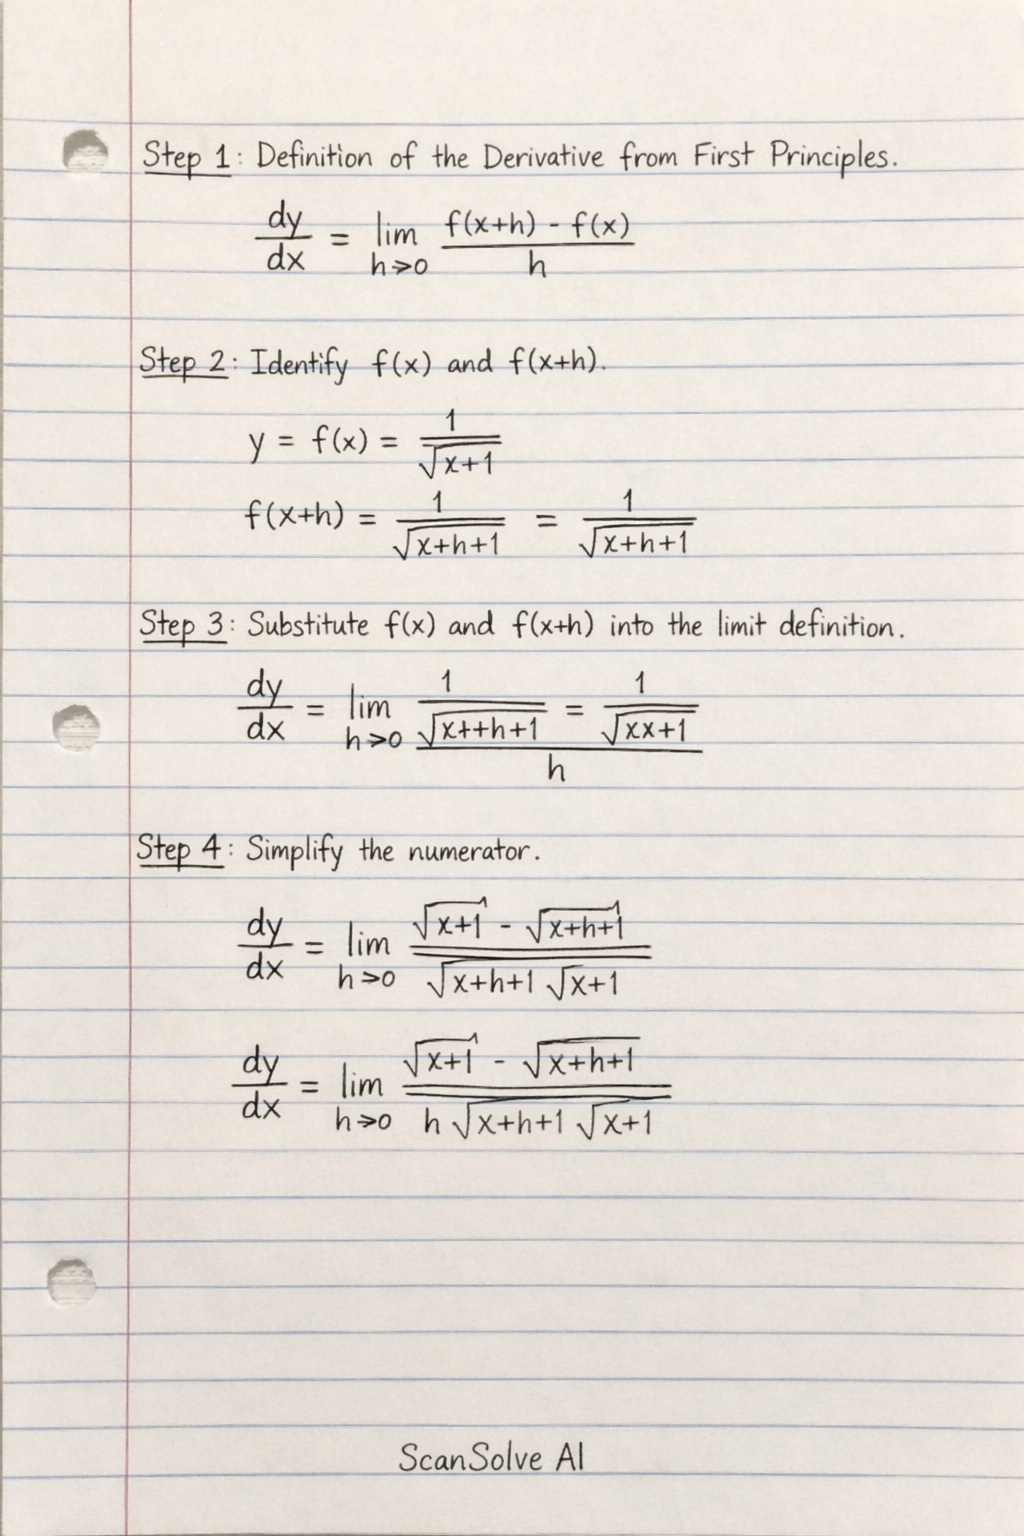 Step 1: Definition of the Derivative from First Principles.
dy/dx = lim h→0 (f(x+h) - f(x))/h
Step 2: Identify f(x) and f(x+h).
y = f(x) = 1/√(x+1)
f(x+h) = 1/√(x+h+1) = 1/√(x+h+1)
Step 3: Substitute f(x) and f(x+h) into the limit definition.
dy/dx = lim h→0 (1/√(x++h+1) = 1/√(xx+1))/h
Step 4: Simplify the numerator.
dy/dx = lim h→0 (√(x+1) - √(x+h+1))/(√(x+h+1) √(x+1))
dy/dx = lim h→0 (√(x+1) - √(x+h+1))/(h √(x+h+1) √(x+1))
ScanSolve AI